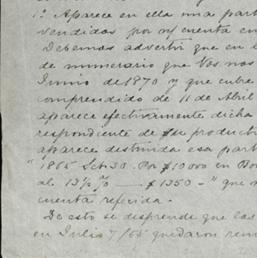 1º Aparece en ella una part
vendidas por n/ cuenta en
Debemos advertir que en l
de numerario que Vos nos
Junio de 1870 y que cubre
comprendido de 11 de Abril
aparece efectivamente dicha
respondiente de su product
aparece distinta esa part
"1865 Set. 30. Por $10000 en Bo
al 13½% — $1350 -" que n
cuenta referida.
De esto se desprende que las
en Julio 7/65 quedaron